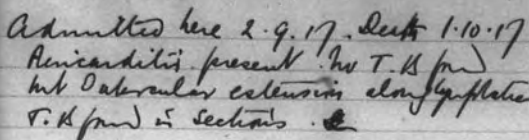 Admitted here 2.9.17. Death 1.10.17
Pericarditis present. No T.B found
but Tubercular extension along lymphatics
T.B found in sections.